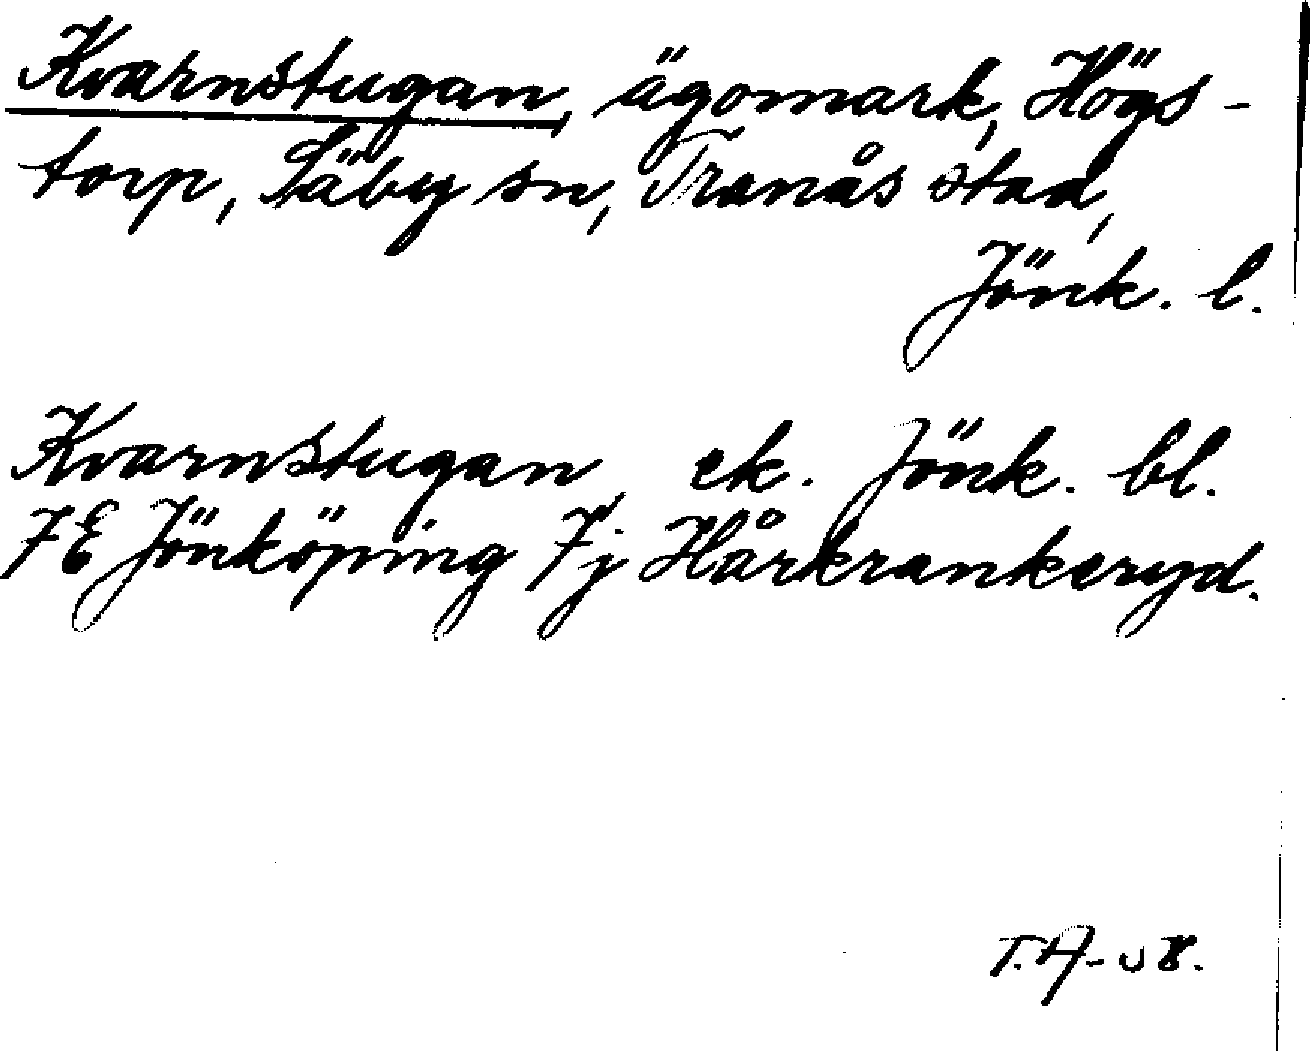 Kvarnstugan, ägomark, Högs-
torp, Säby sn, Tranås stad,
Jönk. l.
Kvarnstugan, ek. Jönk. bl.
7E Jönköping 7j Hårkrankeryd.
T.A-58.